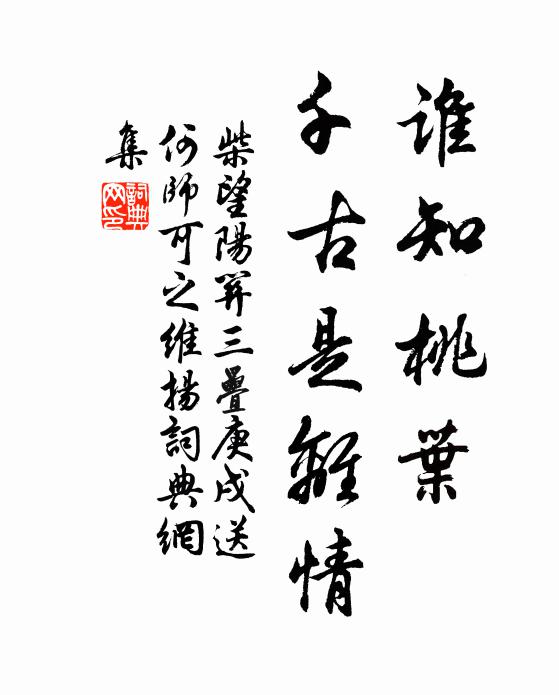 誰知桃葉
千古是離情
柴望陽關三疊庚戌送
何師可之維揚詞典網
集
詞典
网印